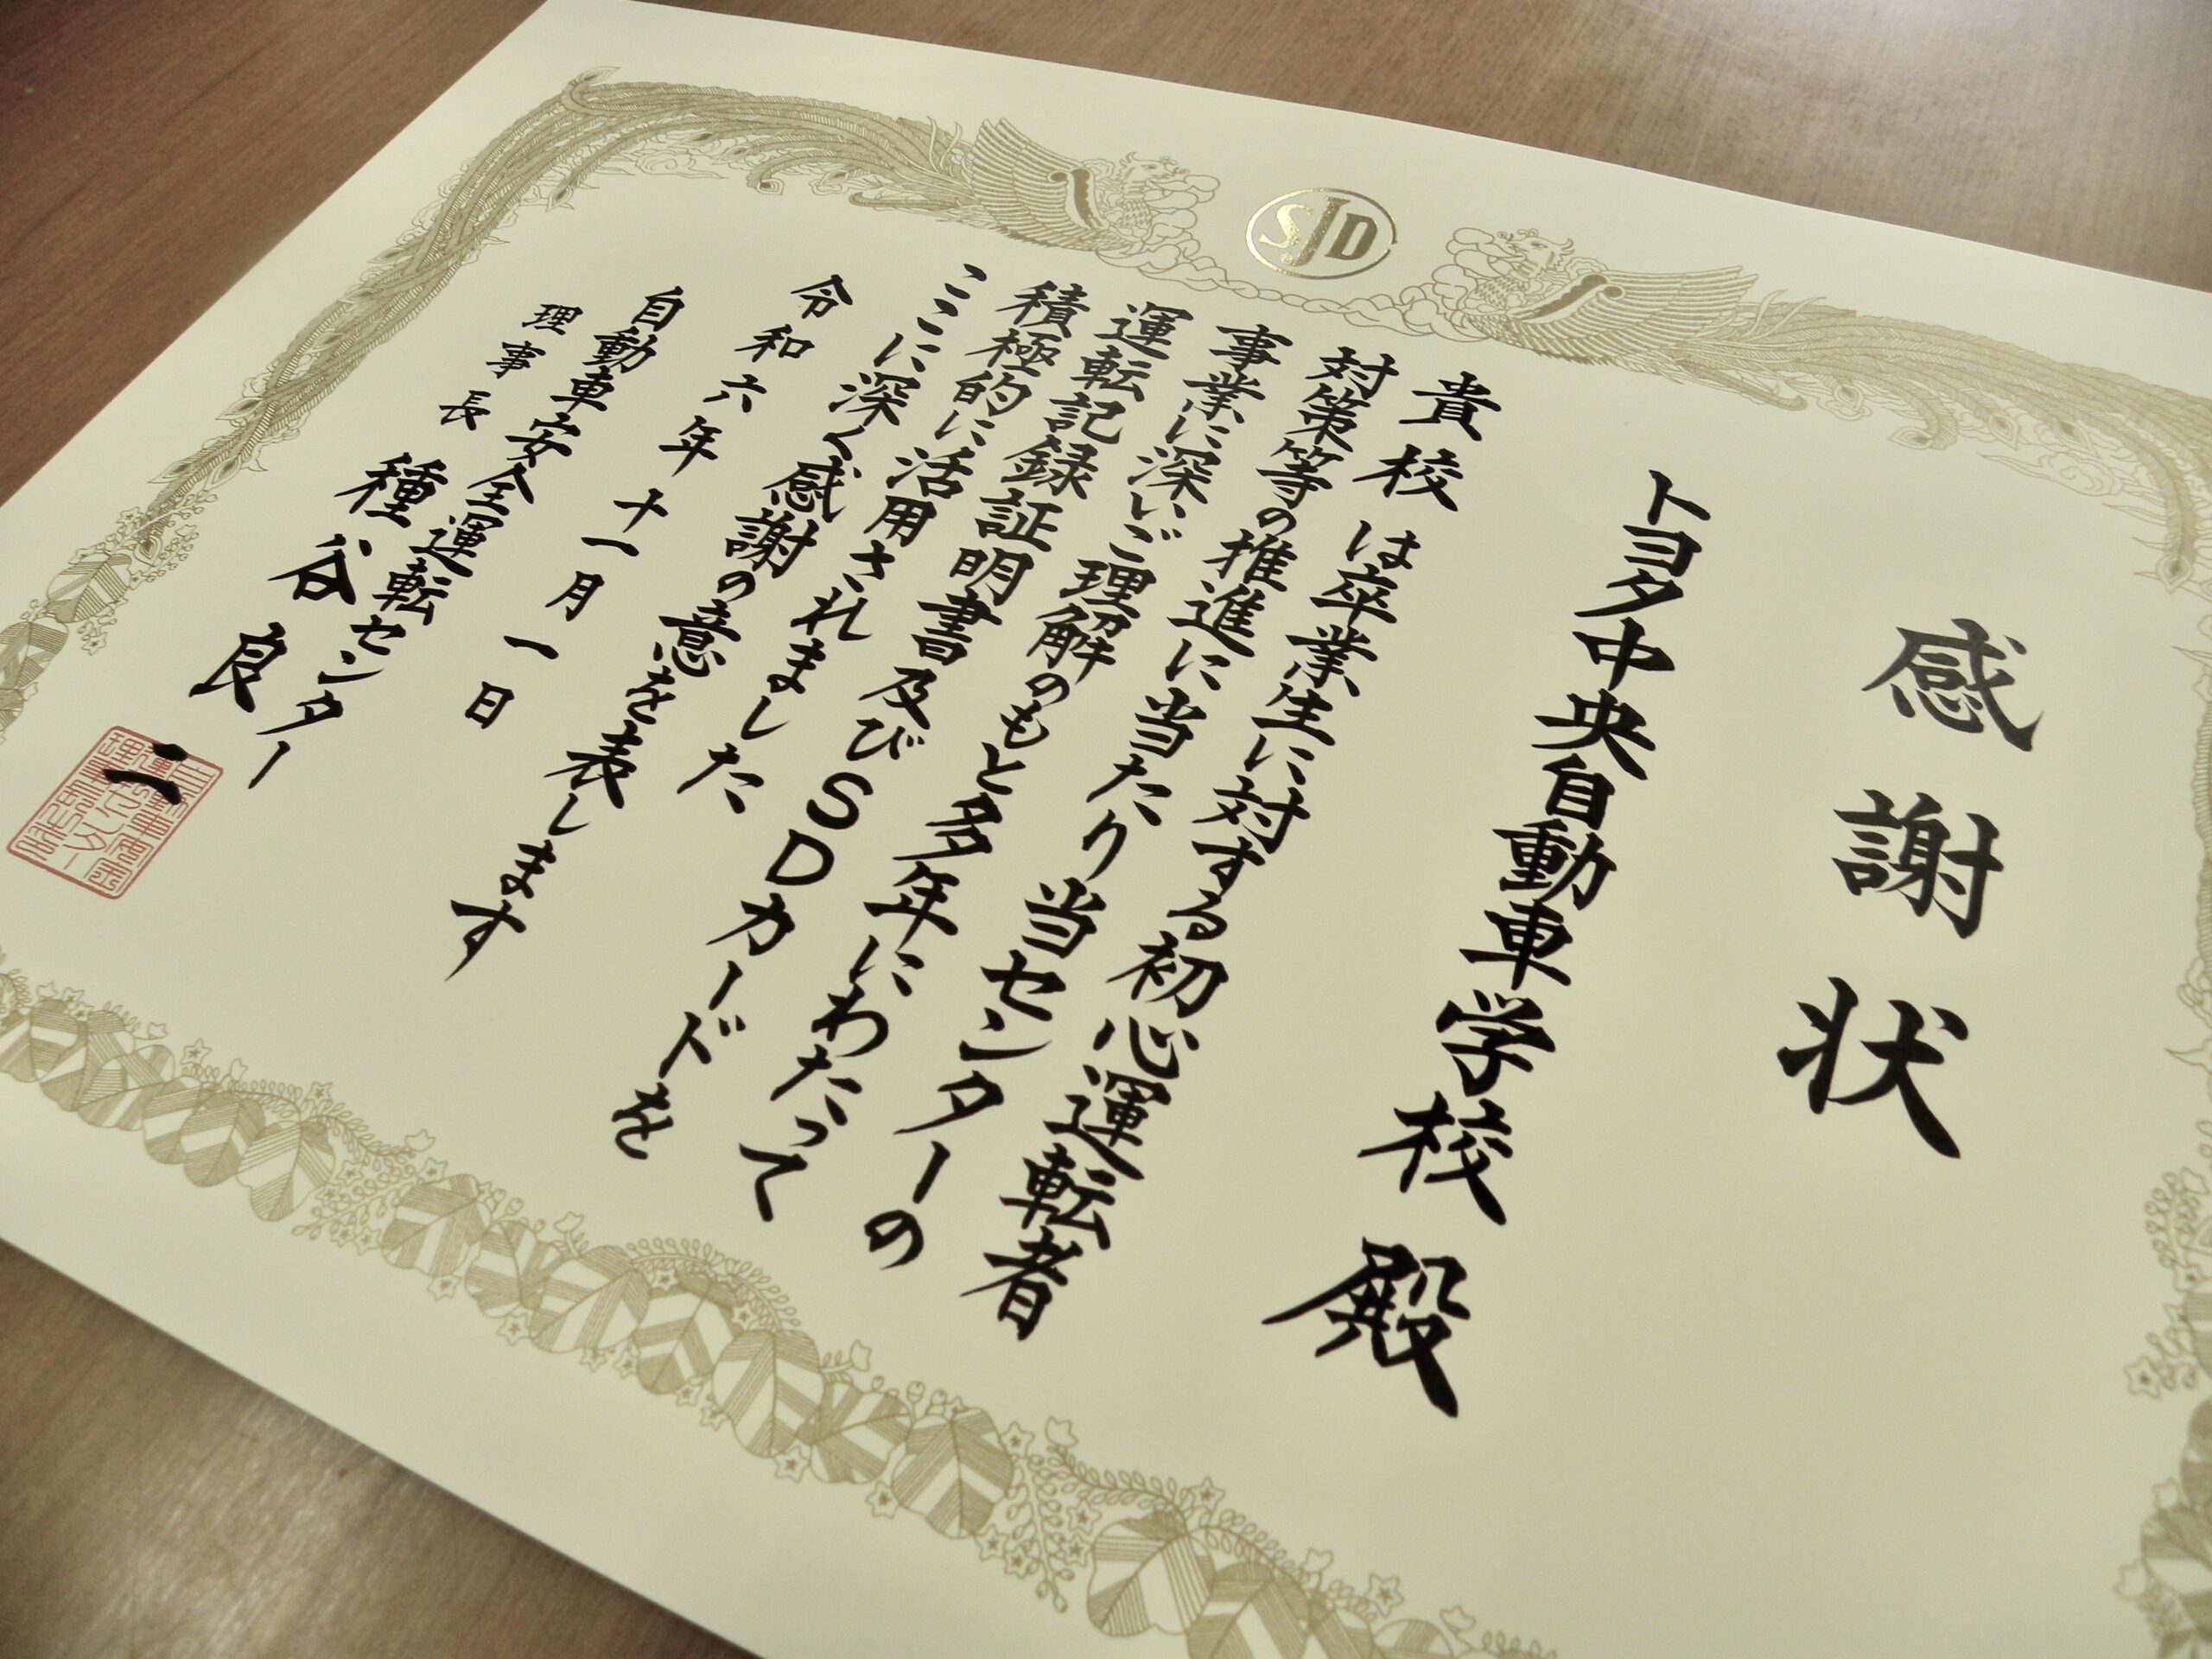 SJD
感謝状
トヨタ中央自動車学校 殿
貴校は卒業生に対する初心運転者
対策等の推進に当たり当センターの
事業に深いご理解のもと多年にわたって
運転記録証明書及びSDカードを
積極的に活用されました
ここに深く感謝の意を表します
令和六年十一月一日
自動車安全運転センター
理事長 種谷良二